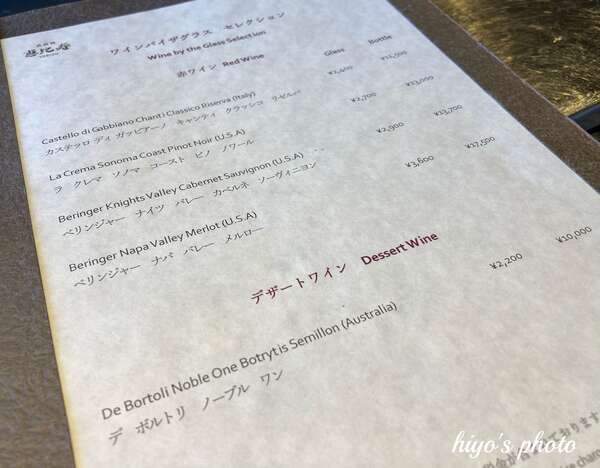 恵比寿
ワインバイザグラス セレクション
Wine by the Glass Selection
赤ワイン Red Wine
Glass Bottle
Castello di Gabbiano Chanti Classico Riserva (Italy) ¥2,400
カステッロ ディ ガッビアーノ キャンティ クラッシコ リゼルバ
La Crema Sonoma Coast Pinot Noir (U.S.A) ¥2,700 ¥13,000
ラ クレマ ソノマ コースト ピノ ノワール
Beringer Knights Valley Cabernet Sauvignon (U.S.A) ¥2,900 ¥13,700
ベリンジャー ナイツ バレー カベルネ ソーヴィニヨン
Beringer Napa Valley Merlot (U.S.A) ¥3,600 ¥17,500
ベリンジャー ナパ バレー メルロー
デザートワイン Dessert Wine
De Bortoli Noble One Botrytis Semillon (Australia) ¥2,200 ¥10,000
デ ボルトリ ノーブル ワン
hiyo's photo